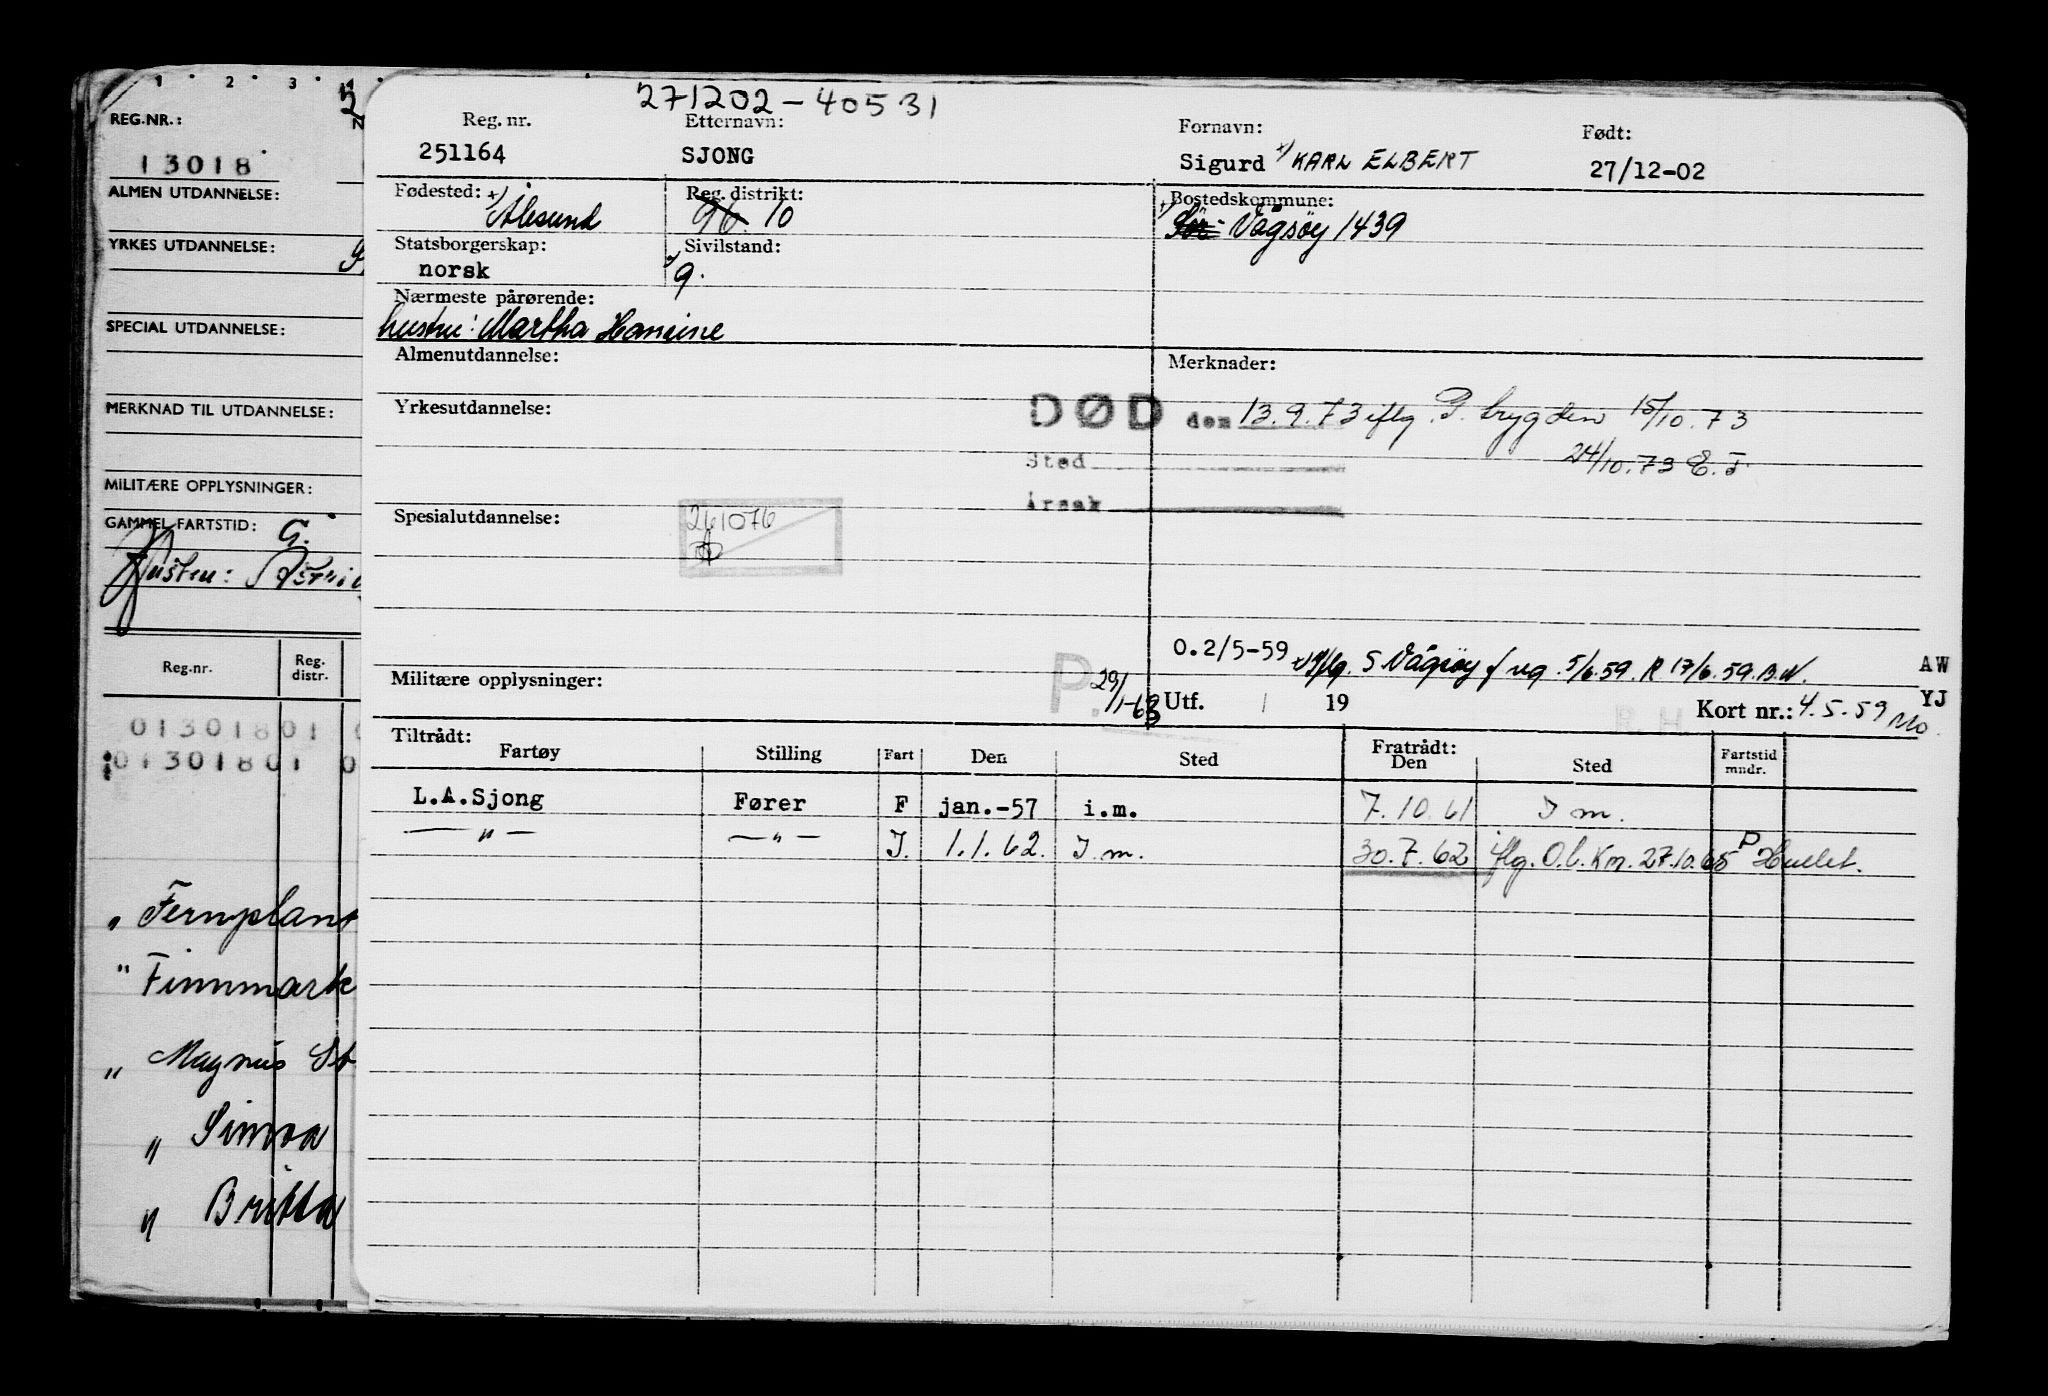 1 2 3
REG.NR.:
13018
ALMEN UTDANNELSE:
YRKES UTDANNELSE:
SPECIAL UTDANNELSE:
MERKNAD TIL UTDANNELSE:
MILITÆRE OPPLYSNINGER:
GAMMEL FARTSTID: G.
Reg.nr. Reg. distr.
01301801
01301801
" Fernplant
" Finnmark
" Magnus
" Simoa
" Britta
271202-40531
Reg. nr. Etternavn: Fornavn: Født:
251164 SJONG Sigurd x) KARL ELBERT 27/12-02
Fødested: Reg. distrikt: Bostedskommune:
x) Ålesund 96. 10 x) Sør- Vågsøy 1439
Statsborgerskap: Sivilstand:
norsk x) g.
Nærmeste pårørende:
hustru: Martha Hansine
Almenutdannelse: Merknader:
Yrkesutdannelse: DØD den 13.9.73 iflg. P. trygden 15/10.73
Sted 24/10.73 E.T.
Årsak
Spesialutdannelse: 261076
O.2/5-59 x) iflg. S Vågsøy f reg. 5/6.59. R 17/6.59. B.N. AW
Militære opplysninger: P. 29/1-63 Utf. / 19 R H Kort nr.: 4.5.59 Mo. YJ
Tiltrådt: Fratrådt:
Fartøy Stilling Fart Den Sted Den Sted Fartstid mndr.
L.A.Sjong Fører F jan.-57 i.m. 7.10.61 I m.
— " — — " — I. 1.1.62. I m. 30.7.62 iflg. O.l. Km. 27.10.65 P Hullet.